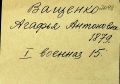 Ващенко
Агафья Антоновна
1879.
I военная 15.